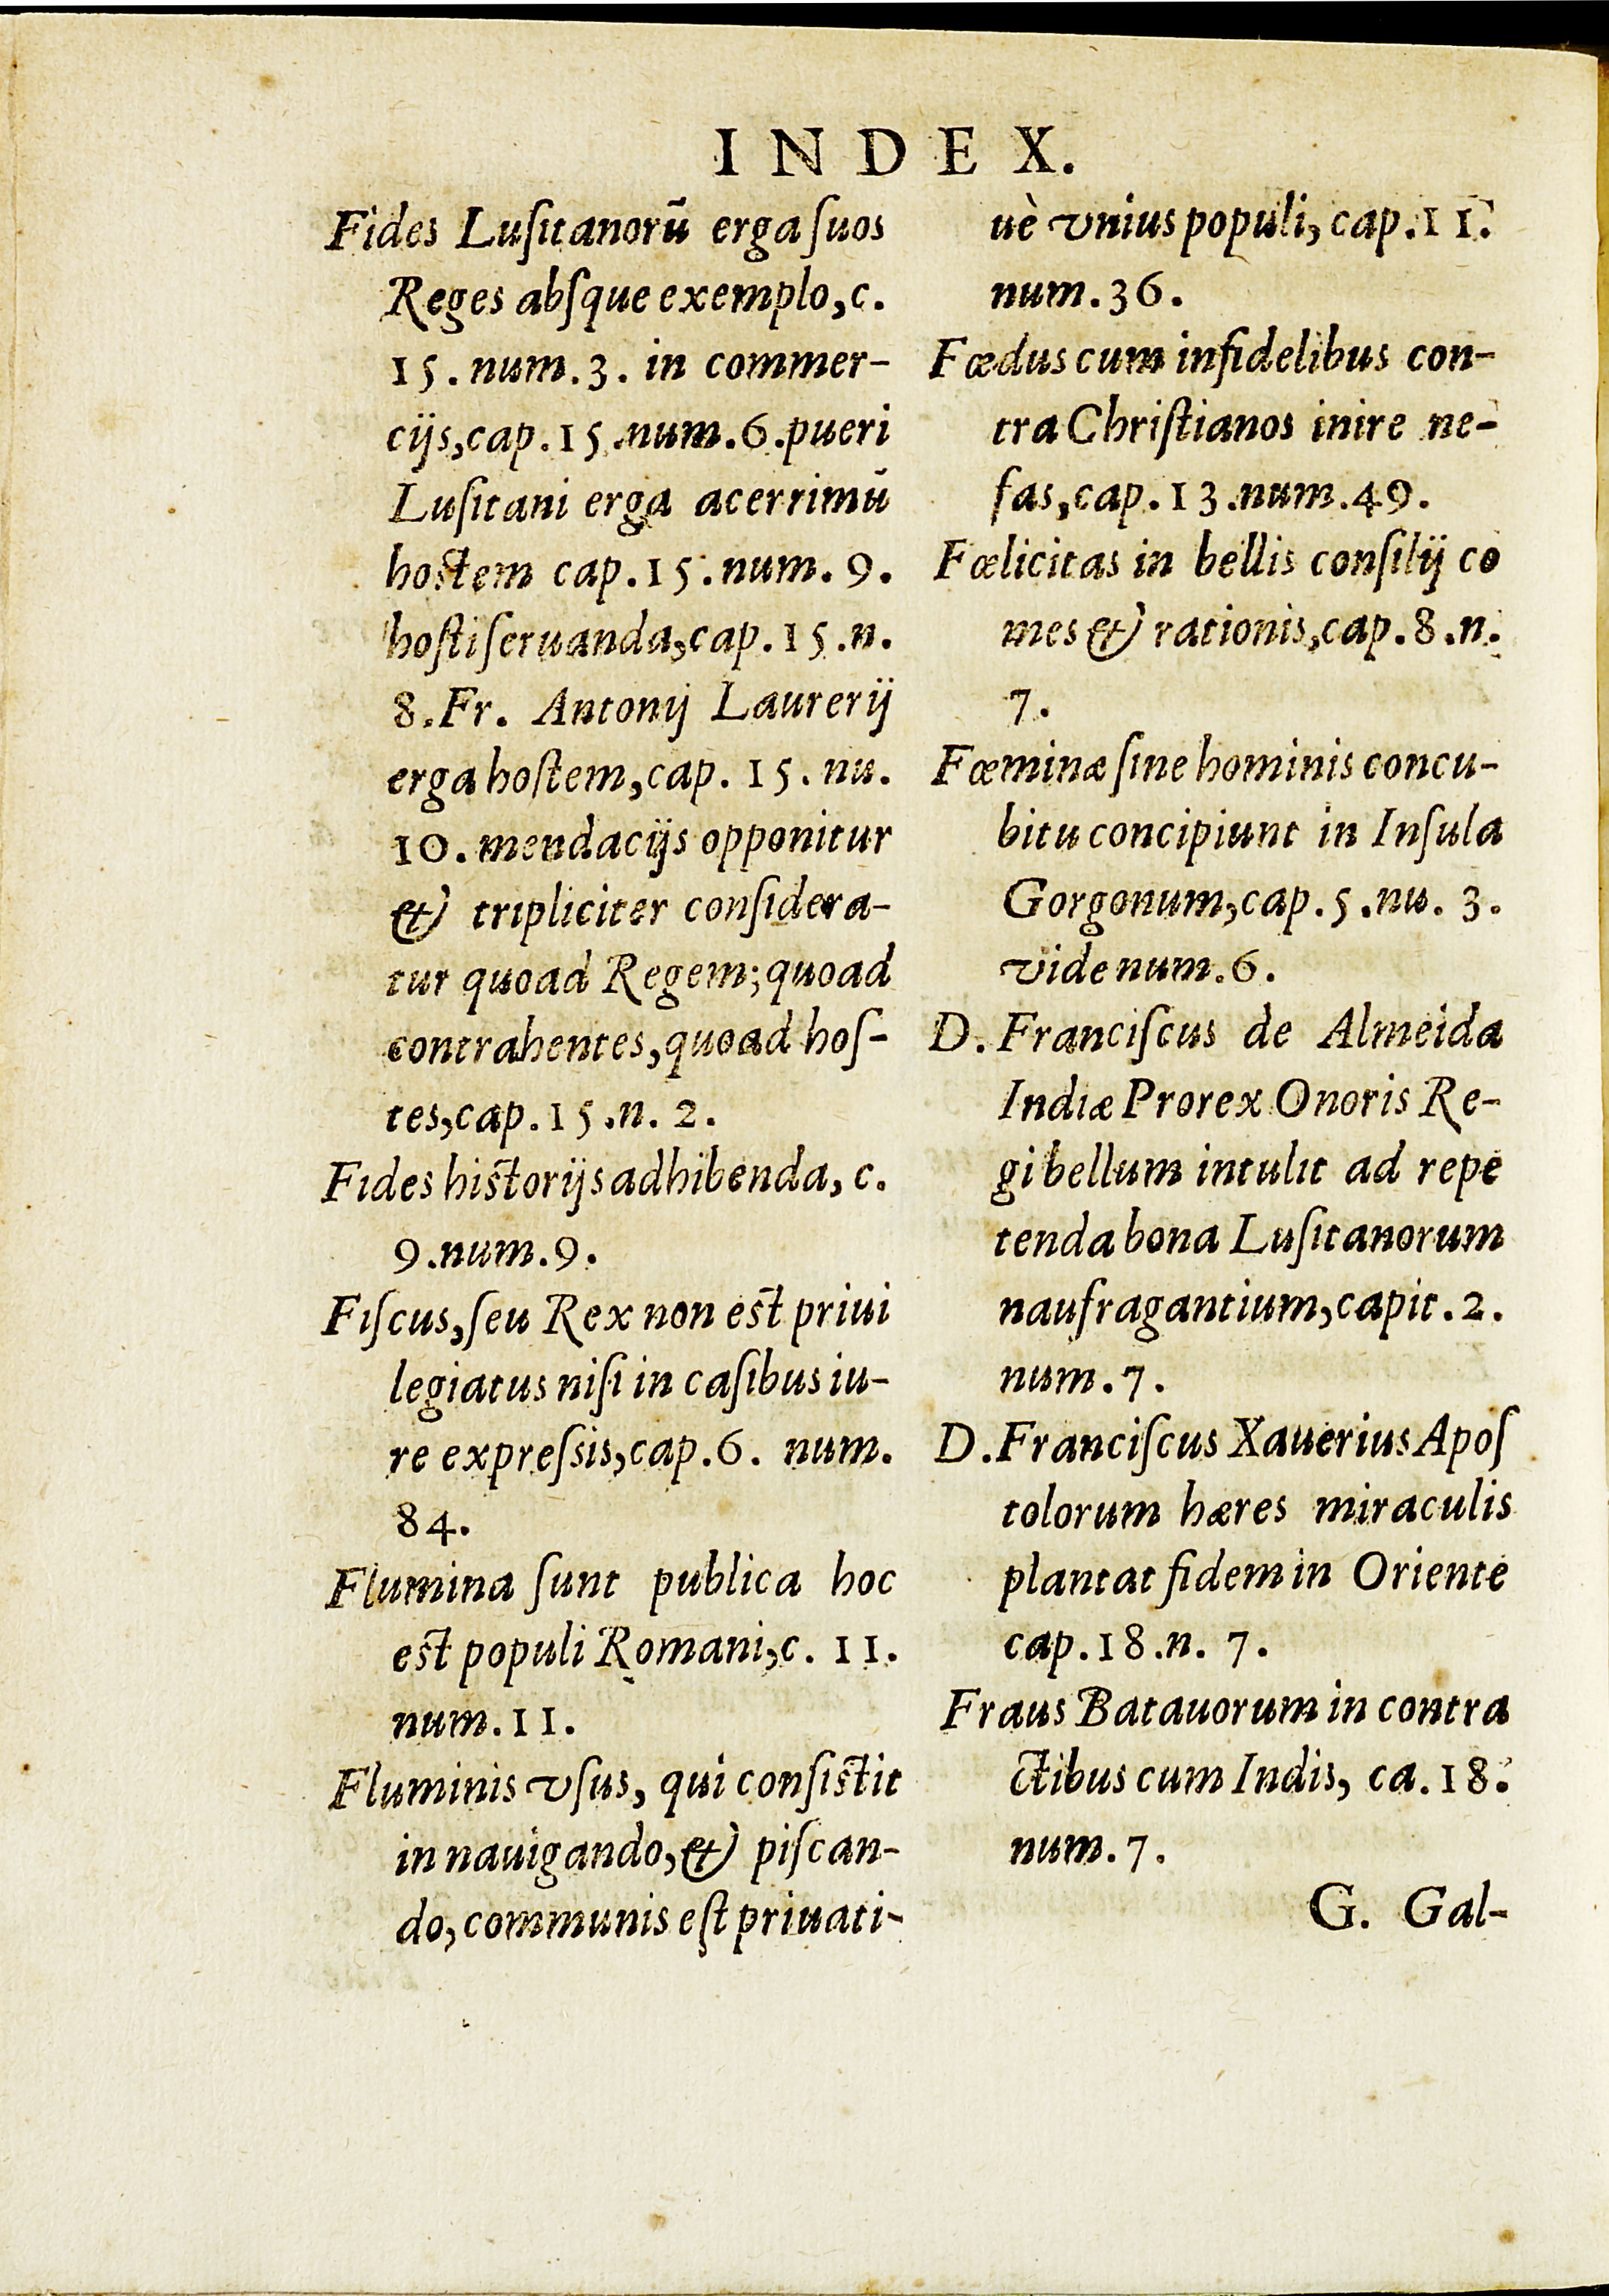 INDEX.
Fides Luſitanorũ erga ſuos
Reges abſque exemplo, c.
15. num. 3. in commer-
cijs, cap. 15. num. 6. pueri
Luſitani erga acerrimũ
hostem cap. 15. num. 9.
hoſti ſeruanda, cap. 15. n.
8. Fr. Antonij Laurerij
erga hoſtem, cap. 15. nu.
10. mendacijs opponitur
& tripliciter conſidera-
tur quoad Regem; quoad
contrahentes, quoad hoſ-
tes, cap. 15. n. 2.
Fides historijs adhibenda, c.
9. num. 9.
Fiſcus, ſeu Rex non est priui
legiatus niſi in caſibus iu-
re expreſsis, cap. 6. num.
84.
Flumina ſunt publica hoc
est populi Romani, c. 11.
num. 11.
Fluminis vſus, qui conſistit
in nauigando, & piſcan-
do, communis eſt priuati-
uè vnius populi, cap. 11.
num. 36.
Fœdus cum infidelibus con-
tra Chriſtianos inire ne-
fas, cap. 13. num. 49.
Fœlicitas in bellis conſilij co
mes & rationis, cap. 8. n.
7.
Fœminæ ſine hominis concu-
bitu concipiunt in Inſula
Gorgonum, cap. 5. nu. 3.
vide num. 6.
D. Franciſcus de Almeida
Indiæ Prorex Onoris Re-
gi bellum intulit ad repe
tenda bona Luſitanorum
naufragantium, capit. 2.
num. 7.
D. Franciſcus Xauerius Apoſ
tolorum hæres miraculis
plantat fidem in Oriente
cap. 18. n. 7.
Fraus Batauorum in contra
ctibus cum Indis, ca. 18.
num. 7.
G. Gal-